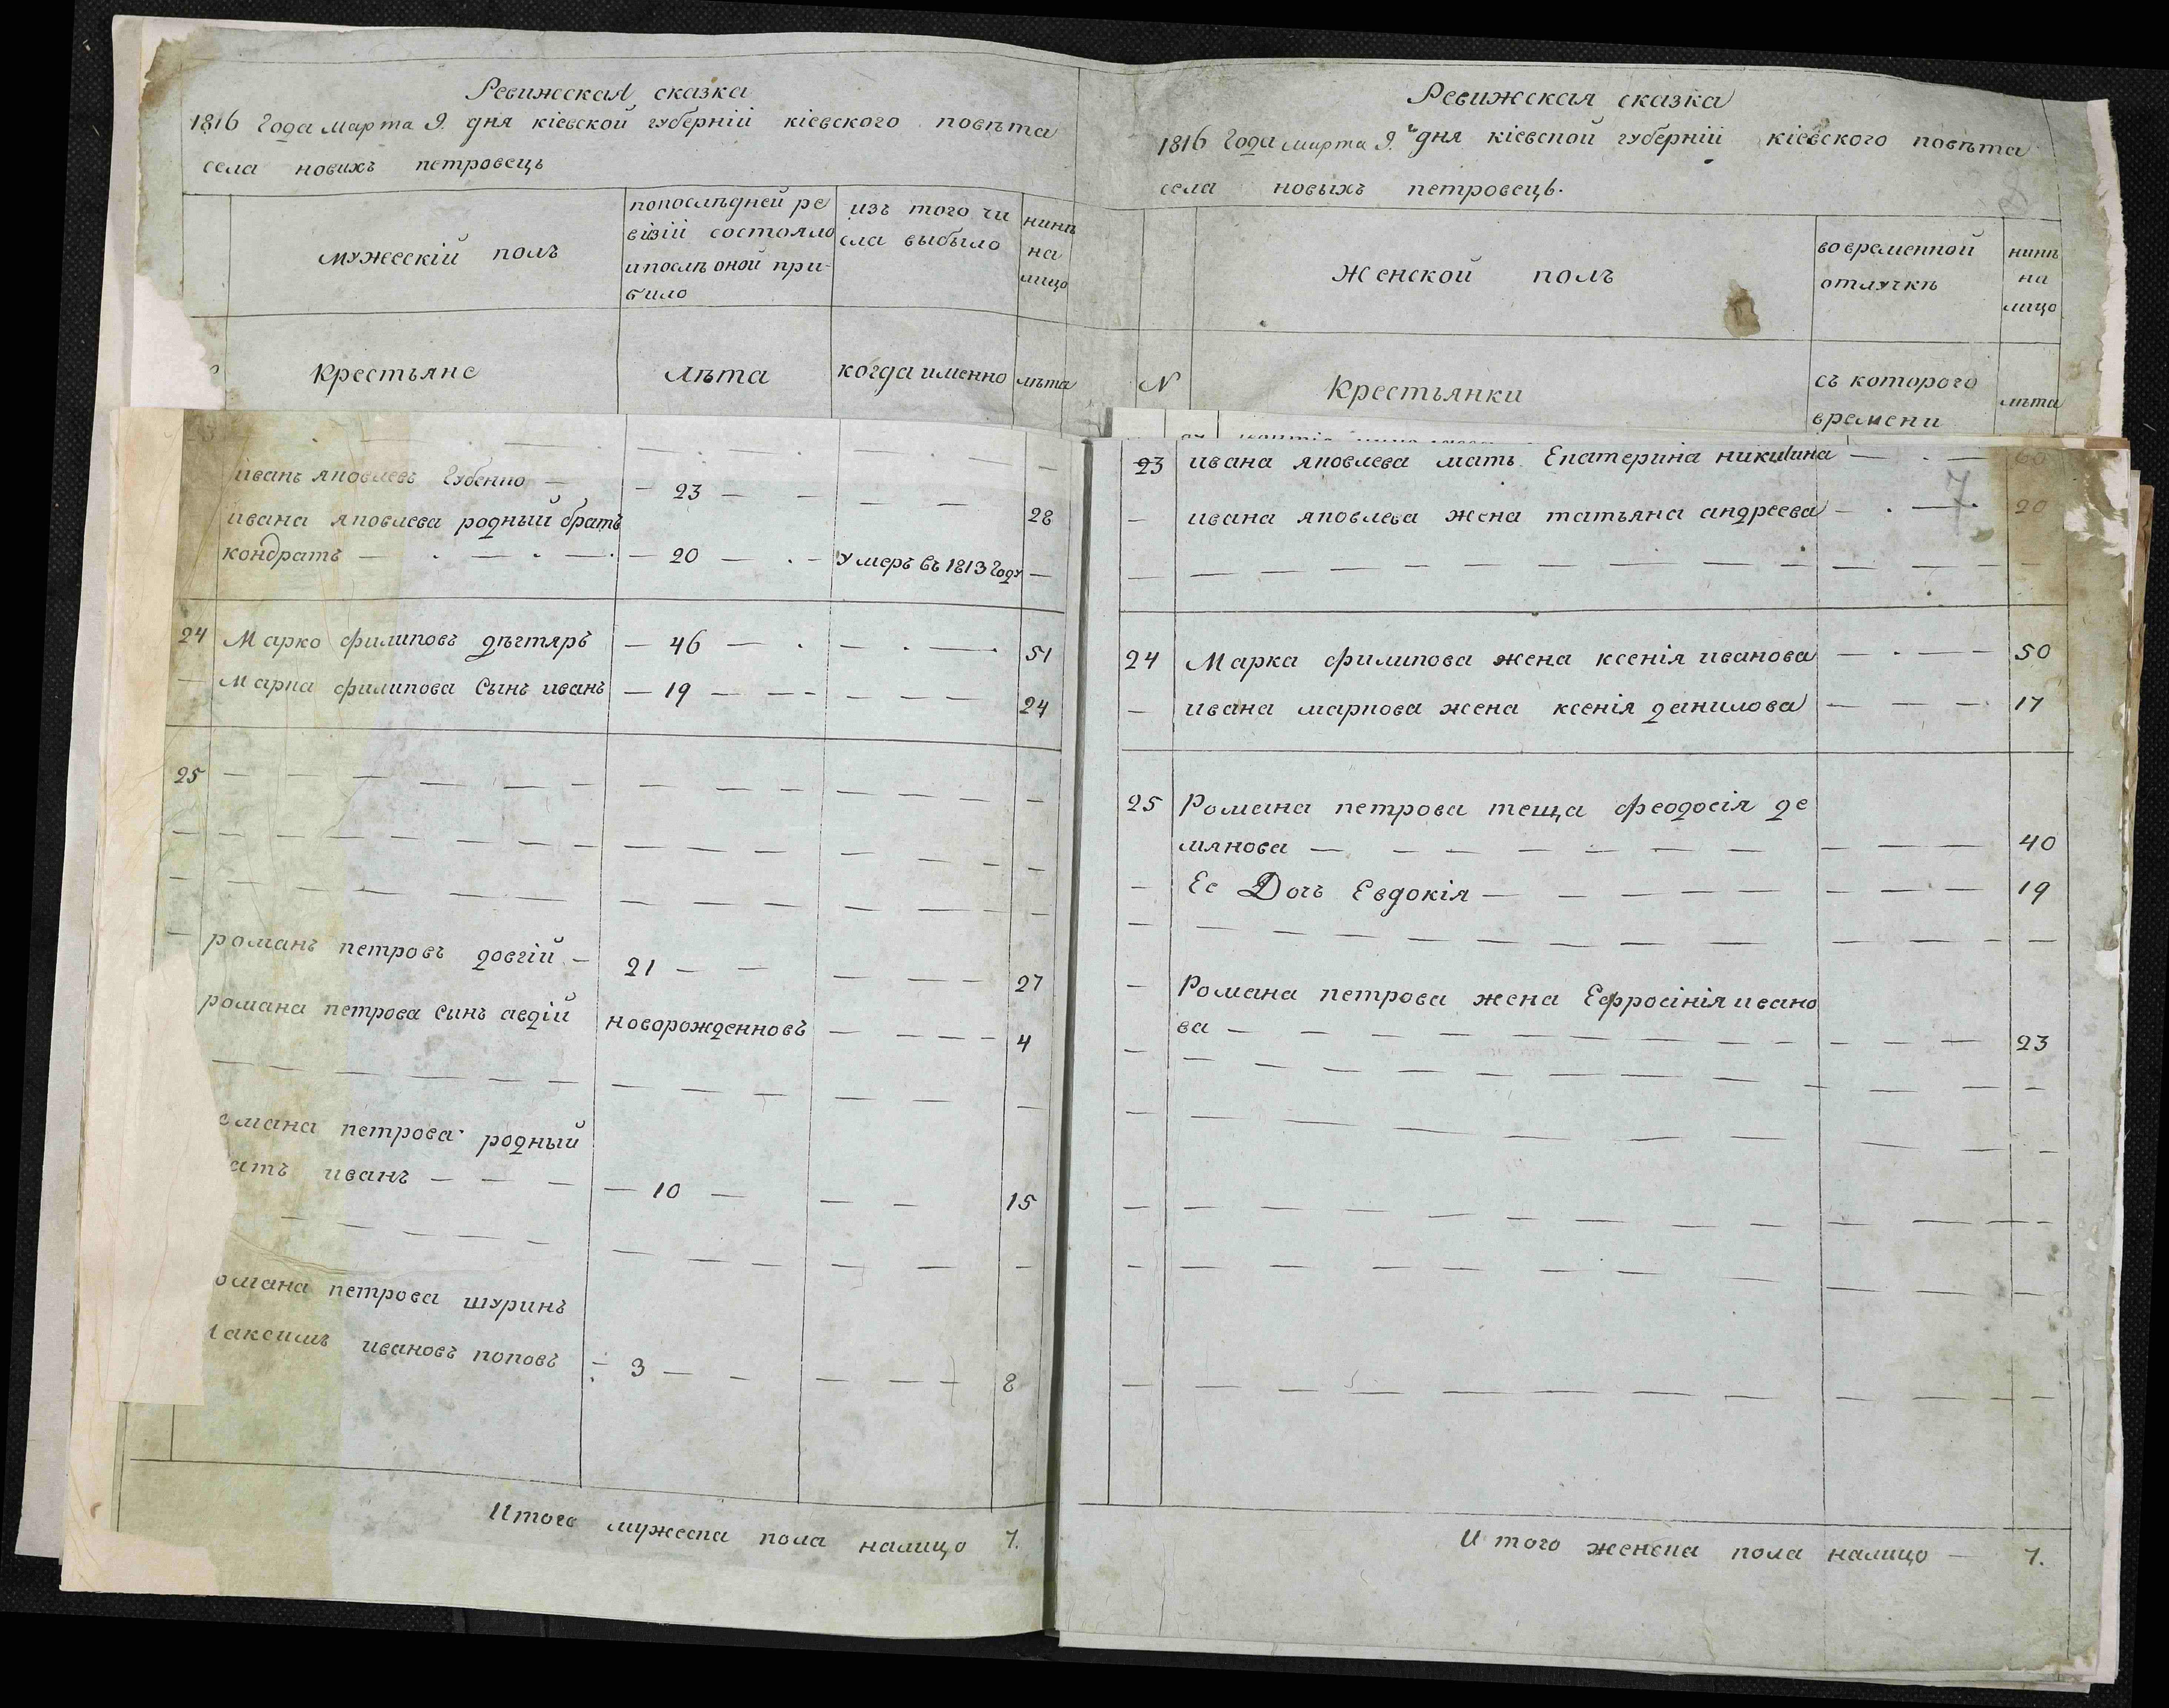 Ревижская сказка
1816 Года марта 9. дня кіевской губерніи кіевского повѣта
села новихъ петровець
мужескій полъ
попослѣдней ре
визіи состояло
ипослѣ оной при-
било
изъ того чи
сла выбыло
нинѣ
на
лицо
Крестьяне
лѣта
когда именно
лѣта
иванъ яковлевъ губенко — — 23 — — — — 28
ивана яковлева родный братъ
кондратъ — — 20 — умеръ въ 1813 году —
24 Марко филиповъ дѣгтяръ — 46 — — 51
— Марка филипова сынъ иванъ — 19 — — 24
25 — — — — — —
— романъ петровъ довгій — 21 — — — 27
романа петрова сынъ авдій новорожденновъ — — 4
омана петрова родный
атъ иванъ — — — 10 — — — 15
омана петрова шуринъ
аксимъ ивановъ поповъ — 3 — — — 8
Итого мужеска пола налицо 7.
Ревижская сказка
1816 Года марта 9.г дня кіевской губерніи кіевского повѣта
села новыхъ петровець.
Женской полъ
вовременной
отлучкѣ
нинѣ
на
лицо
N
Крестьянки
съ которого
времени
лѣта
7
23 ивана яковлева мать Екатерина никитина — — 60
— ивана яковлева жена татьяна андреева — — 20
24 Марка филипова жена ксенія иванова — — 50
— ивана маркова жена ксенія данилова — — — 17
25 Романа петрова теща феодосія де
мянова — — — — 40
— Ее Дочь Евдокія — — — — 19
— Романа петрова жена Ефросінія ивано
ва — — — — 23
Итого женска пола налицо — 7.